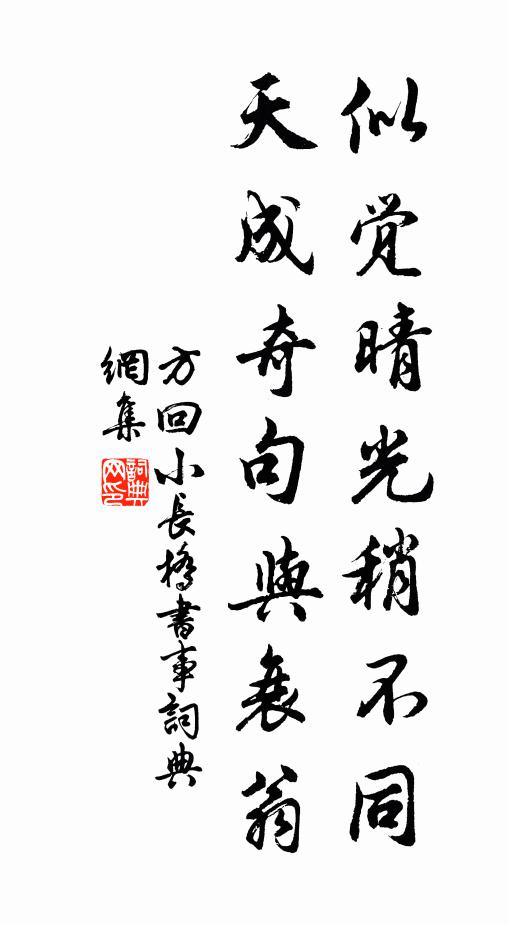 似覚晴光稍不同
天成奇句與衰翁
方回小長橋書事詞典
網集
詞典網印